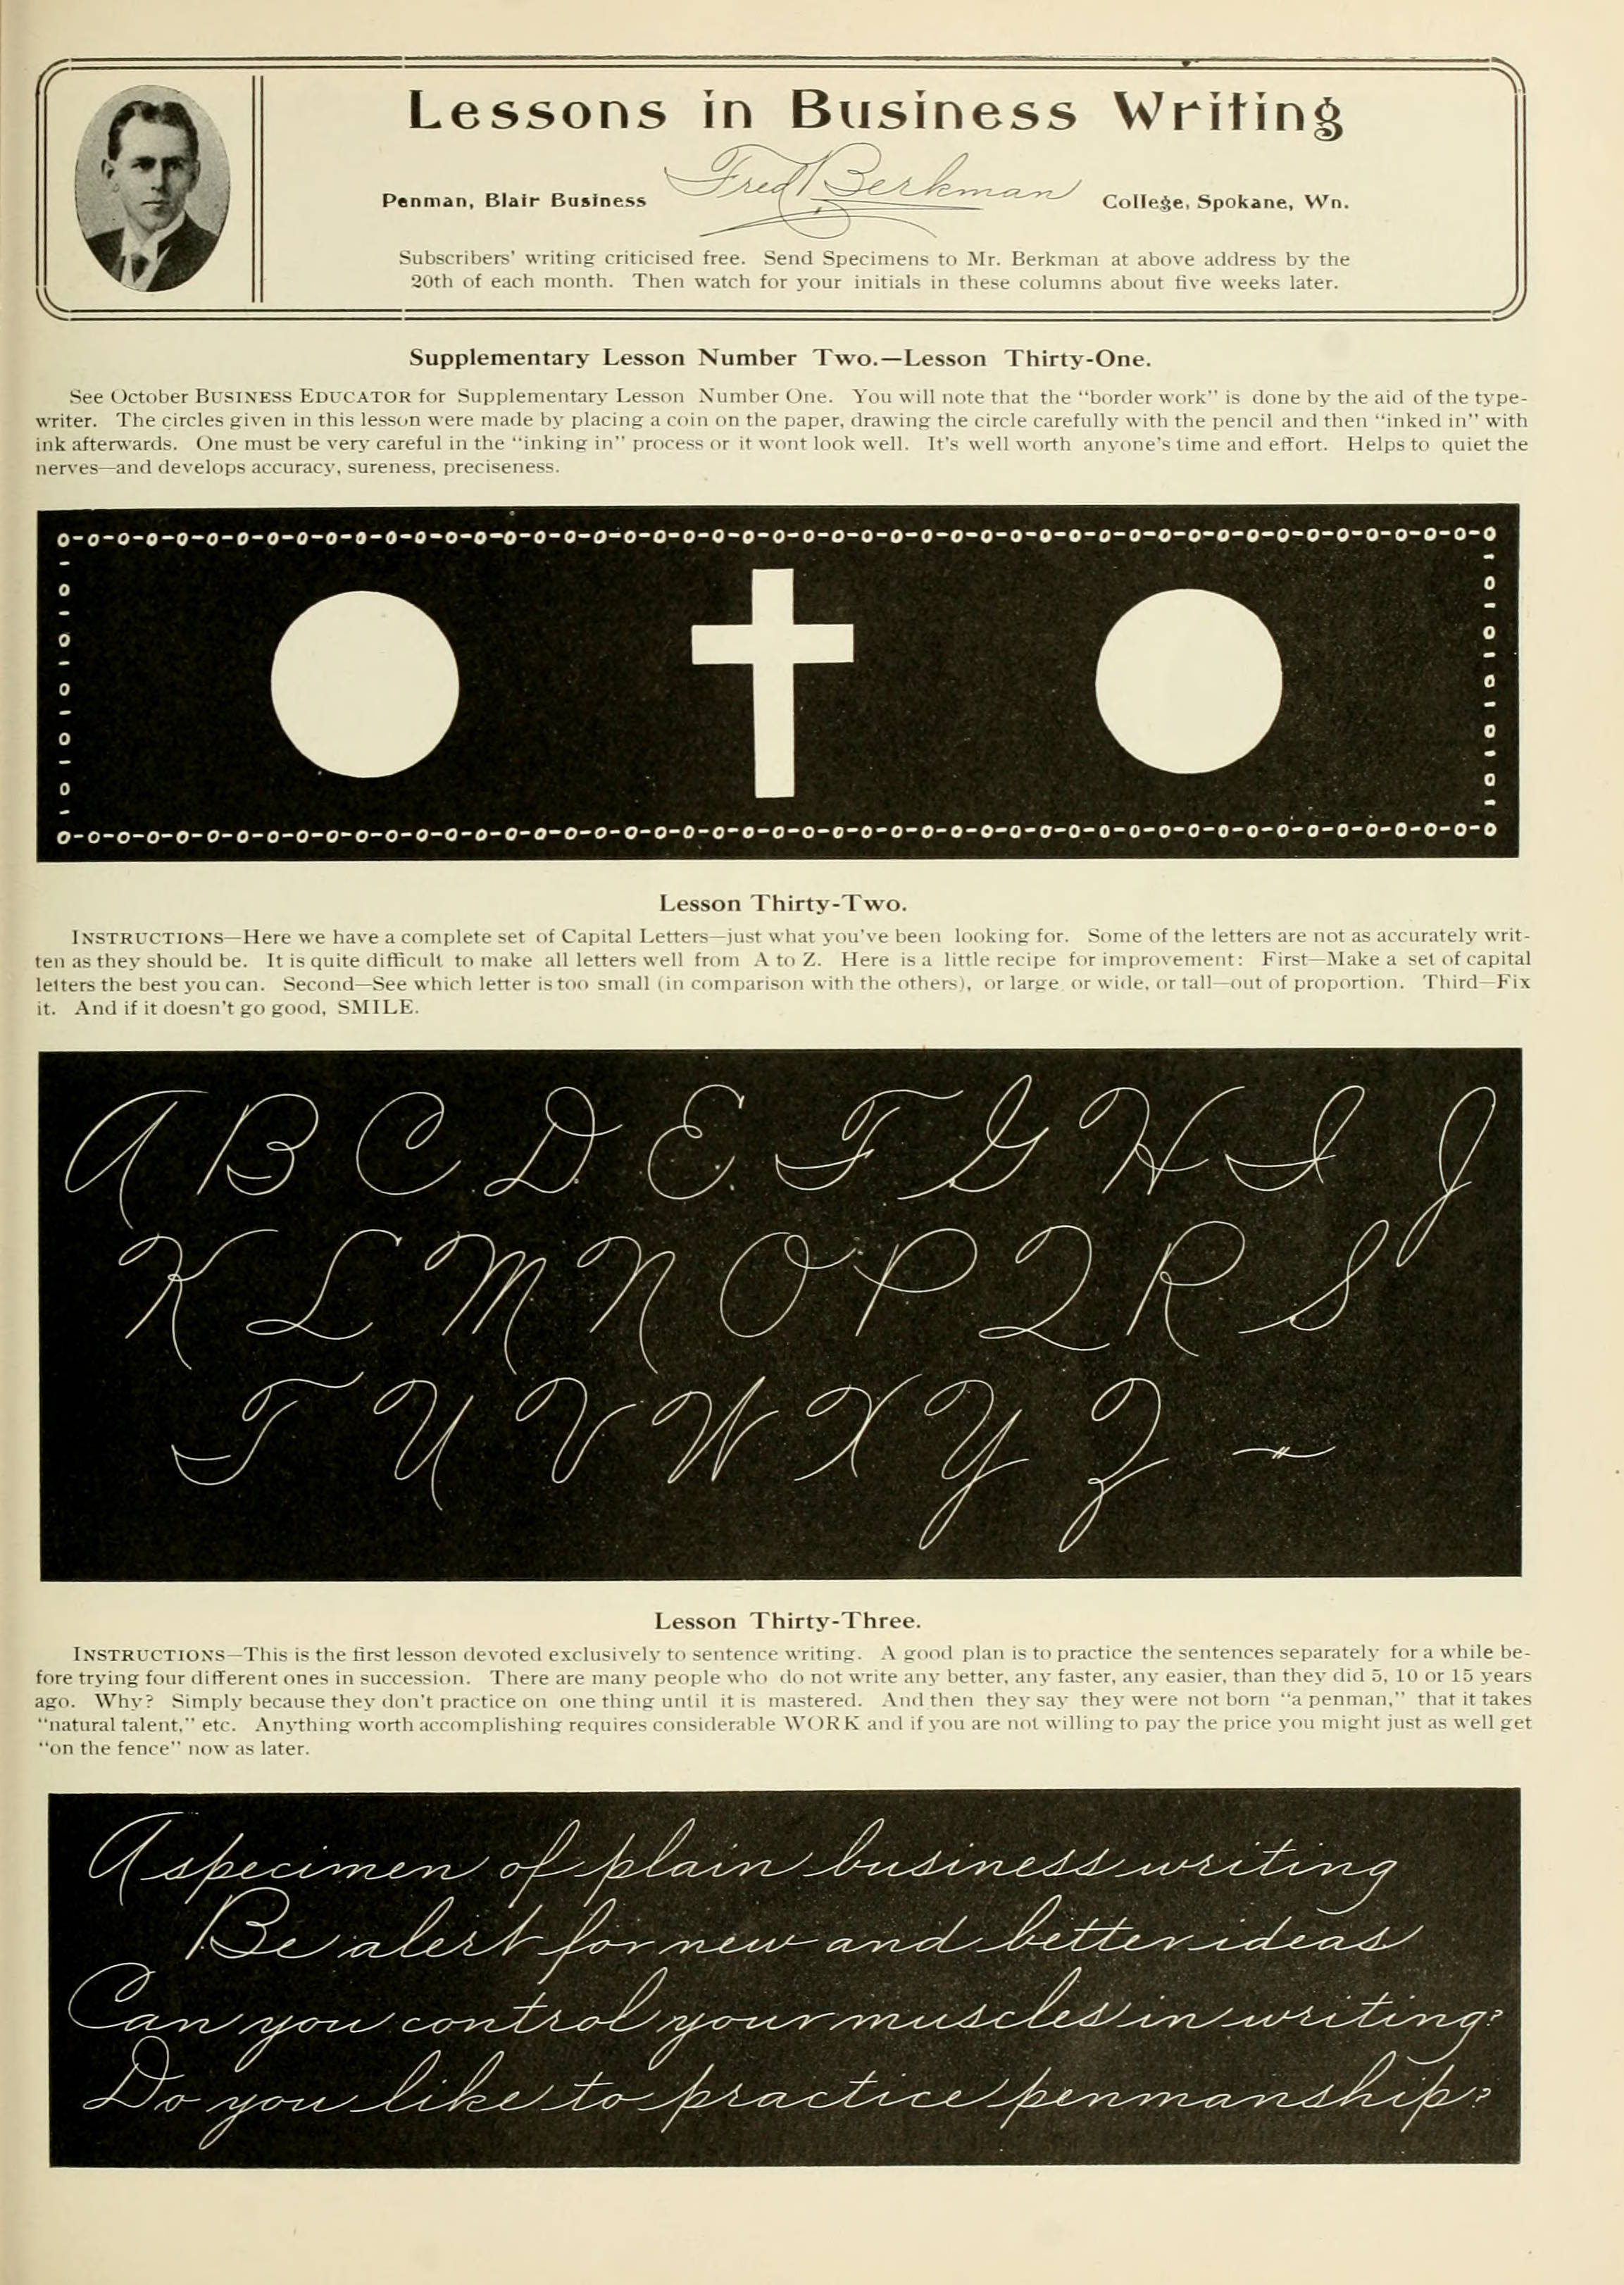 Lessons in Business Writing
Fred Berkman
Penman, Blair Business College, Spokane, Wn.
Subscribers' writing criticised free. Send Specimens to Mr. Berkman at above address by the
20th of each month. Then watch for your initials in these columns about five weeks later.
Supplementary Lesson Number Two.—Lesson Thirty-One.
See October BUSINESS EDUCATOR for Supplementary Lesson Number One. You will note that the "border work" is done by the aid of the type-
writer. The circles given in this lesson were made by placing a coin on the paper, drawing the circle carefully with the pencil and then "inked in" with
ink afterwards. One must be very careful in the "inking in" process or it wont look well. It's well worth anyone's time and effort. Helps to quiet the
nerves—and develops accuracy, sureness, preciseness.
Lesson Thirty-Two.
INSTRUCTIONS—Here we have a complete set of Capital Letters—just what you've been looking for. Some of the letters are not as accurately writ-
ten as they should be. It is quite difficult to make all letters well from A to Z. Here is a little recipe for improvement: First—Make a set of capital
letters the best you can. Second—See which letter is too small (in comparison with the others), or large, or wide, or tall—out of proportion. Third—Fix
it. And if it doesn't go good, SMILE.
A B C D E F G H I J
K L M N O P Q R S
T U V W X Y Z
Lesson Thirty-Three.
INSTRUCTIONS—This is the first lesson devoted exclusively to sentence writing. A good plan is to practice the sentences separately for a while be-
fore trying four different ones in succession. There are many people who do not write any better, any faster, any easier, than they did 5, 10 or 15 years
ago. Why? Simply because they don't practice on one thing until it is mastered. And then they say they were not born "a penman," that it takes
"natural talent," etc. Anything worth accomplishing requires considerable WORK and if you are not willing to pay the price you might just as well get
"on the fence" now as later.
A specimen of plain business writing
Be alert for new and better ideas
Can you control your muscles in writing?
Do you like to practice penmanship?